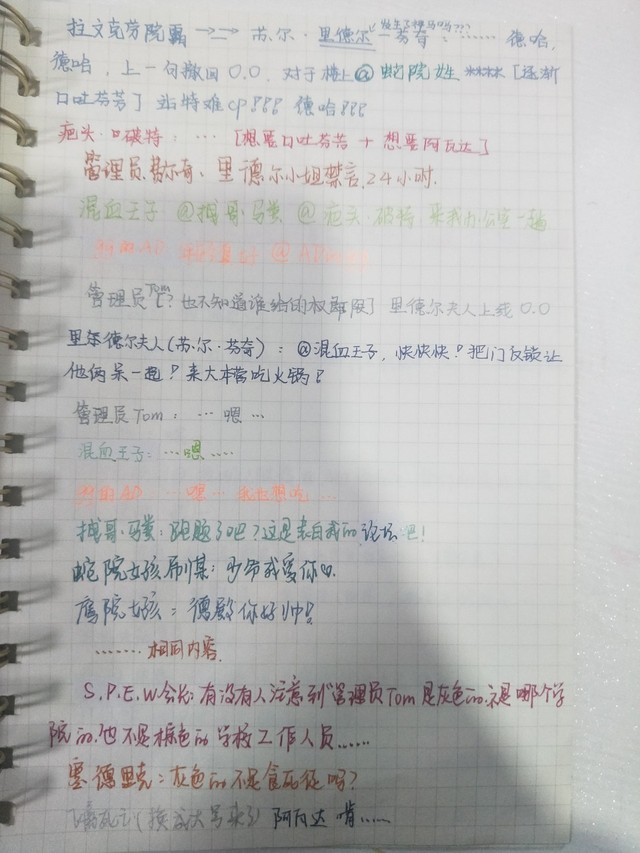 拉文克劳院霸 →→ 苏尔·里德尔一芬奇：…… 德哈，
德哈，上一句撤回0.0，对于楼上@蛇院姓****[逐渐
口吐芬芳] 站特难cp!!! 德哈!!!
疤头·破特：…[想要口吐芬芳+想要阿瓦达]
管理员费尔奇：里德尔小姐禁言24小时.
混血王子：@搏哥·马粪 @疤头·破特 来我办公室一趟
管理员Tom[?也不知道谁给的权限] 里德尔夫人上线0.0
里德尔夫人(苏尔·芬奇)：@混血王子，快快快！把门反锁让
他俩呆一起！来大本营吃火锅！
管理员Tom：…嗯…
混血王子：…嗯……
搏哥·马粪：跑题了吧？这是来自我的论坛吧！
蛇院女孩刷某：少爷我爱你
鹰院女孩：德殿你好帅!
……相同内容.
S.P.E.W会长：有没有人注意到“管理员Tom是灰色的.不是哪个学
院的.他不是棕色的学校工作人员……
塞德里克：灰色的不是食死徒吗？
(换成大号来) 阿瓦达啃……